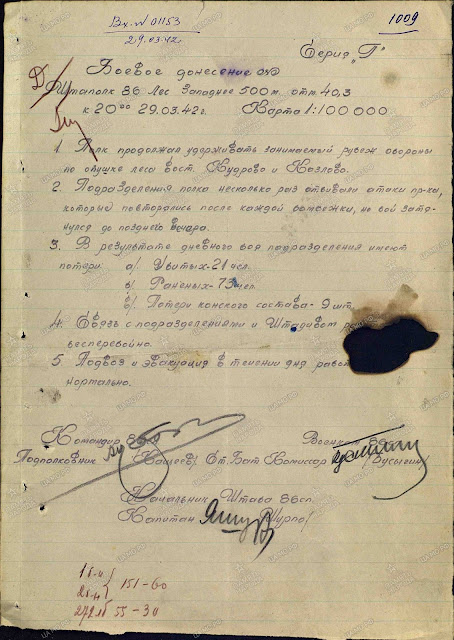 Вх. № 01153
29.03.42.
1009
Серия „Г"
Боевое донесение
Штаполк 86 Лес Западнее 500 м. отм. 40,3
к 20⁰⁰ 29.03.42 г. Карта 1:100 000.
1. Полк продолжал удерживать занимаемый рубеж обороны
по опушке леса вост. Кудрово и Козлово.
2. Подразделения полка несколько раз отбивали атаки пр-ка,
которые повторялись после каждой бомбежки, но бой затя-
нулся до позднего вечара.
3. В результате дневного боя подразделения имеют
потери: а/ Убитых - 21 чел.
в/ Раненых - 73 чел
б/ Потери конского состава - 9 шт.
4. Связь с подразделениями и Штадивом
бесперебойно.
5. Подвоз и эвакуация в течении дня
нормально.
Командир 86
Военком 86
Подполковник Ст. Бат. Комиссар /Бусыгин/
Начальник Штаба 86 сп.
Капитан
151-60
55-30